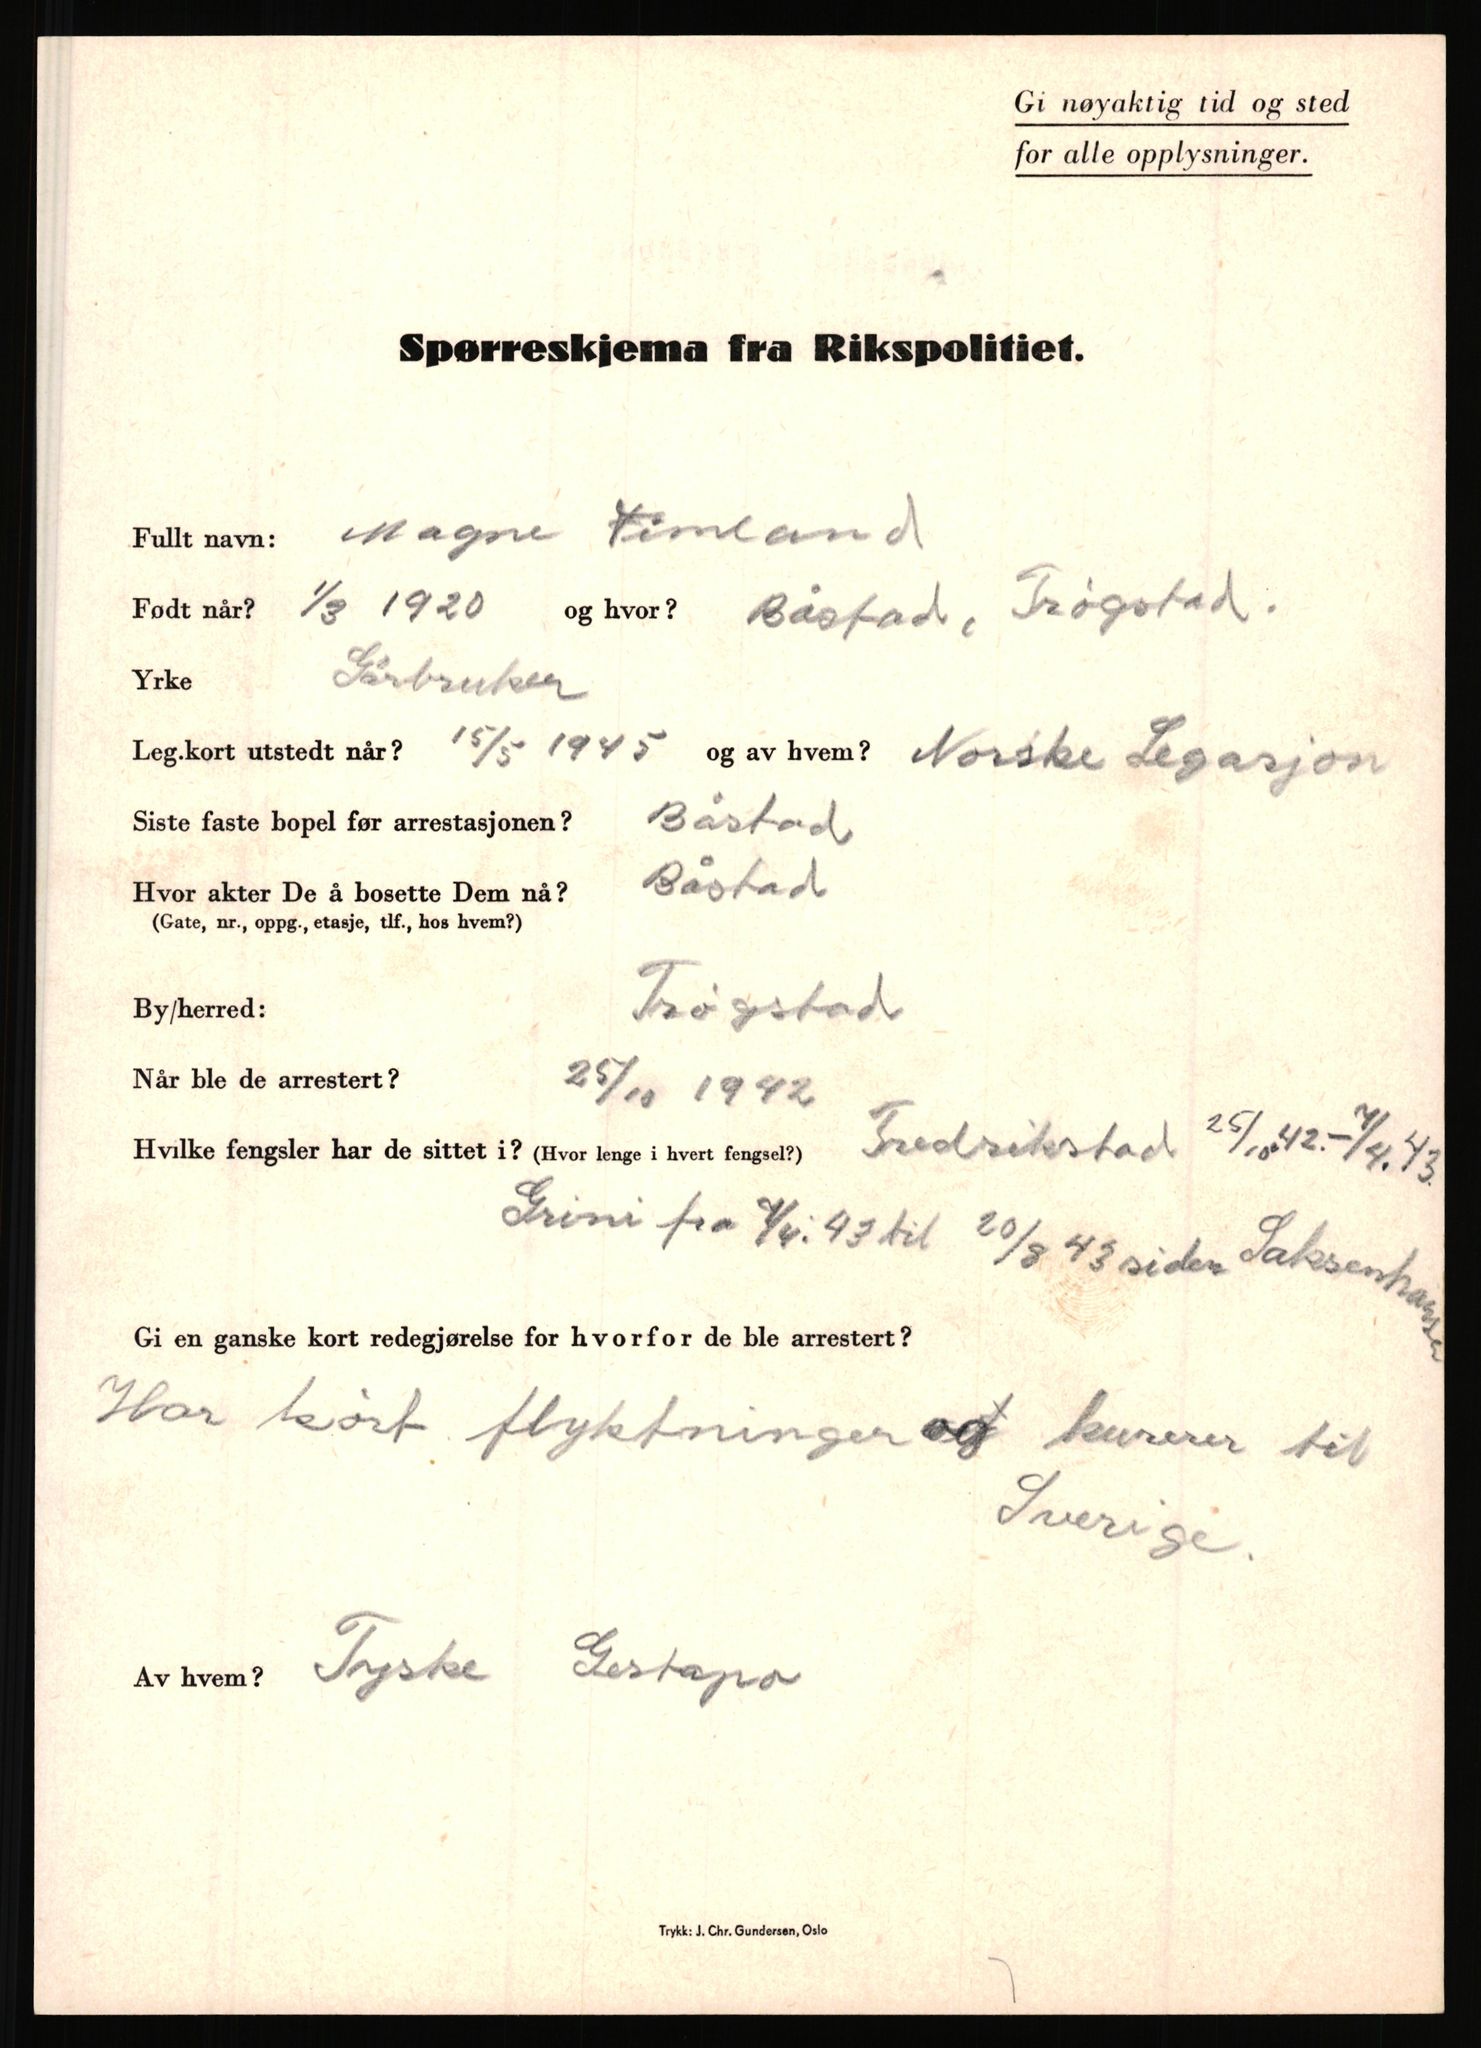 Gi nøyaktig tid og sted
for alle opplysninger.
Spørreskjema fra Rikspolitiet.
Fullt navn: Magne Fimland
Født når? 1/3 1920 og hvor? Båstad, Trøgstad.
Yrke Gårbruker
Leg.kort utstedt når? 15/5 1945 og av hvem? Norske Legasjon
Siste faste bopel før arrestasjonen? Båstad
Hvor akter De å bosette Dem nå? Båstad
(Gate, nr., oppg., etasje, tlf., hos hvem?)
By/herred: Trøgstad
Når ble de arrestert? 25/10 1942
Hvilke fengsler har de sittet i? (Hvor lenge i hvert fengsel?) Fredrikstad 25/10.42.-7/4.43.
Grini fra 7/4.43 til 20/8 43 siden Saksenhausen
Gi en ganske kort redegjørelse for hvorfor de ble arrestert?
Har kørt flyktninger og kurerer til
Sverige.
Av hvem? Tyske Gestapo
Trykk: J. Chr. Gundersen, Oslo